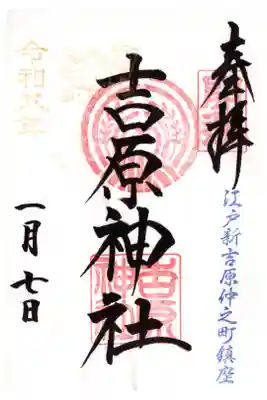 奉拝
江戸新吉原仲之町鎮座
吉原神社
吉原神社
令和五年
一月七日